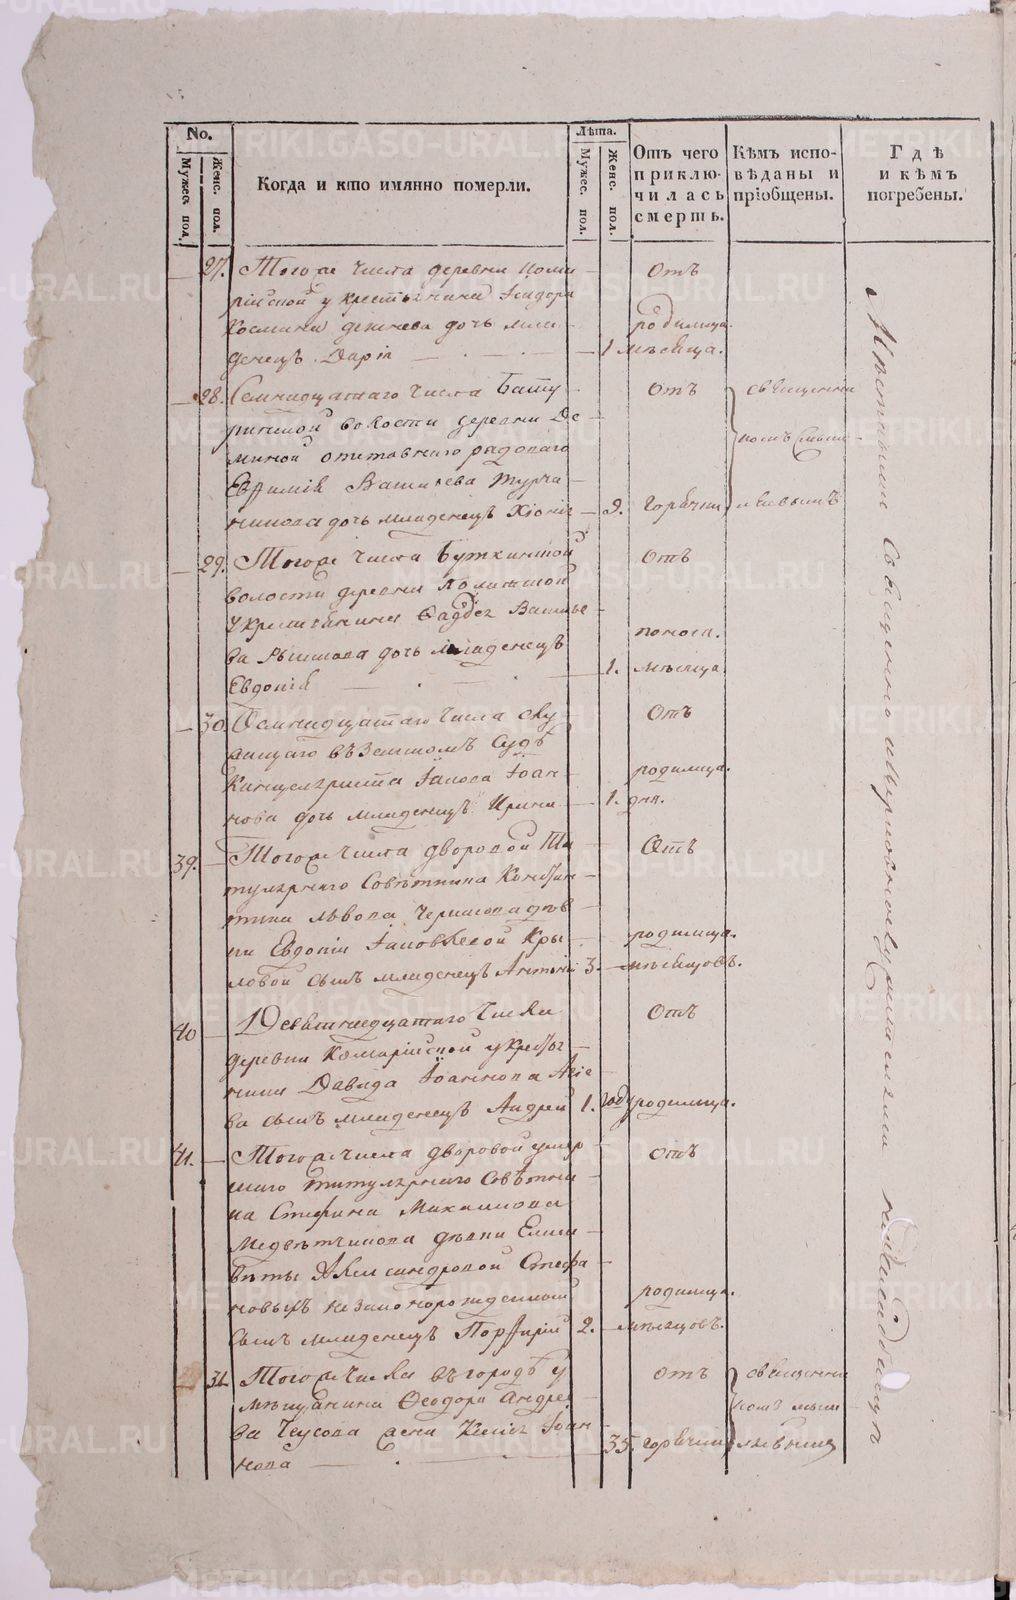 No.
Мужес. пол.
Женс. пол.
Когда и кто имянно померли.
Лѣта.
Мужес. пол.
Женс. пол.
Отъ чего
приклю-
чилась
смерть.
Кѣмъ испо-
вѣданы и
пріобщены.
Гдѣ
и кѣмъ
погребены.
27. Тогоже числа деревни Кома
рійской у крестьянина Ісидора
Космина дочь мла
денецъ Дарія 1 мѣсяца.
отъ
родимца.
28. Семнадцатаго числа Бату
ринской волости деревни Де
миной отставнаго рядоваго
Евфимія Васильева Турча
нинова дочь младенецъ Хіонія 9.
отъ
горячки
священни
комъ
29. Тогоже числа Буткинской
волости деревни
у крестьянина Фаддея Василье
ва дочь младенецъ
Евдокія 1. мѣсяца
отъ
поноса.
30. Осмнадцатаго числа слу
жащаго въ Земскомъ Судѣ
Канцеляриста Іакова Іоан
нова дочь младенецъ Ирина 1. дня.
отъ
родимца.
39. Тогоже числа дворовой Ти
тулярнаго Совѣтника Констан
тина Львова дѣв
ки Евдокіи Іаковлевой Кры
ловой сынъ младенецъ Антоній 3. мѣсяцовъ.
Отъ
родимца.
40 Девятнадцатаго числа
деревни Комарійской у кресть
нина Давида Іоаннова
ва сынъ младенецъ Андрей 1. году
отъ
родимца.
41. Тогоже числа дворовой умер
шаго титулярнаго Совѣтни
ка Стефана Максимова
Медвѣтчикова дѣвки Елиса
веты Александровой Стефа
новыхъ незаконорожденный
сынъ младенецъ Порфирій 2. мѣсяцовъ.
отъ
родимца.
31. Тогоже числа въ городѣ у
мѣщанина Феодора Андре
ва Чеусова жена Іоан
нова 35.
отъ
горячки
священни
комъ
Мѣстными священно и церковнослужителями на кладбище
METRIKI.GASO-URAL.RU